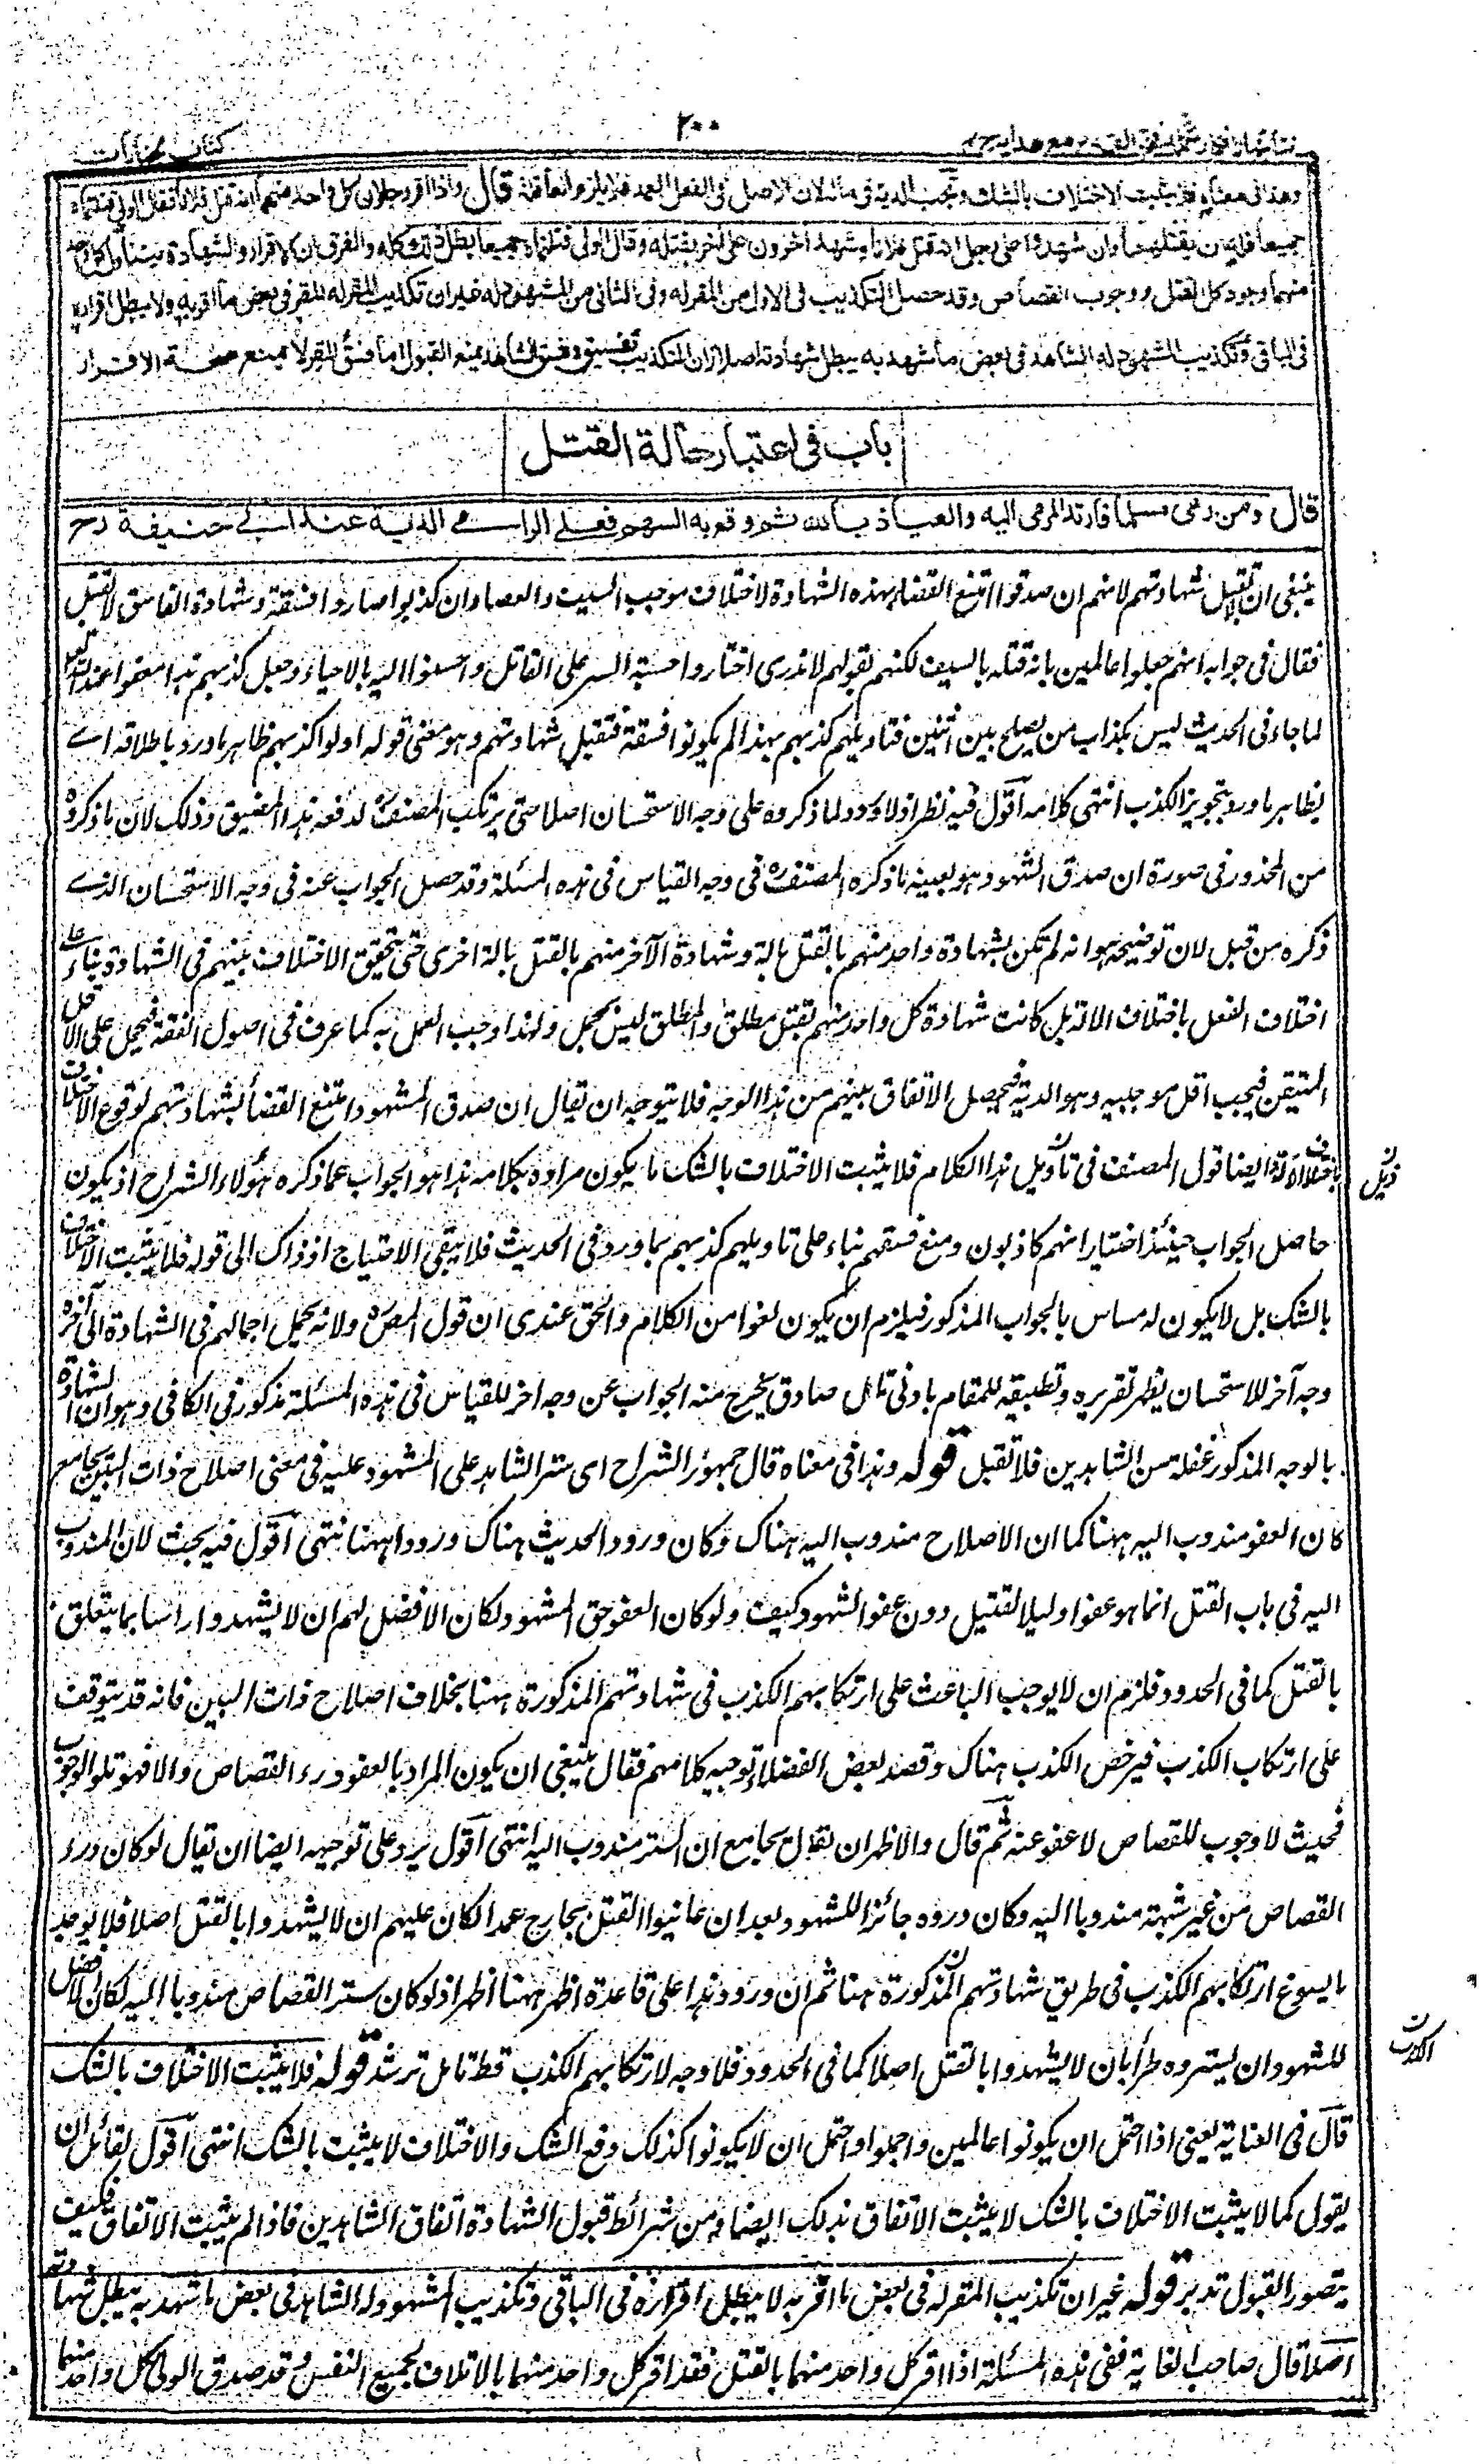 ٢٠٠
نتائج الافكار تكملة فتح القدير مع هدايه ج ٤
كتاب الجنايات
وهذا في معناه فلا يثبت الاختلاف بالشك وتجب الدية في ماله لان الاصل في الفعل العمد فلا يلزم العاقلة قال واذا اقر رجلان كل واحد منهما انه قتل فلانا فقال الولي قتلتماه
جميعا فله ان يقتلهما وان شهدوا على رجل انه قتل فلانا وشهد آخرون على آخر بقتله وقال الولي قتلتماه جميعا بطل ذلك كله والفرق ان الاقرار والشهادة يتناول كل واحد
منهما وجود كل القتل ووجوب القصاص وقد حصل التكذيب في الاول من المقر له وفي الثاني من المشهود له غير ان تكذيب المقر له المقر في بعض ما اقر به لا يبطل اقراره
في الباقي وتكذيب المشهود له الشاهد في بعض ما شهد به يبطل شهادته اصلا لان التكذيب تفسيق وفسق الشاهد يمنع القبول اما فسق المقر لا يمنع صحة الاقرار
باب في اعتبار حالة القتل
قال ومن رمى مسلما فارتد المرمى اليه والعياذ بالله ثم وقع به السهم فعلى الرامي الدية عند ابي حنيفة رح
ينبغي ان لا تقبل شهادتهم لانهم ان صدقوا امتنع القضاء بهذه الشهادة لاختلاف موجب السيف والعصا وان كذبوا صاروا فسقة وشهادة الفاسق لا تقبل
فقال في جوابه انهم جعلوا عالمين بانه قتله بالسيف لكنهم بقولهم لا ندري اختاروا حسبة الستر على القاتل واحسنوا اليه بالاحياء وجعل كذبهم هذا معفوا عند الله تعالى
لما جاء في الحديث ليس بكذاب من يصلح بين اثنين فتاويلهم كذبهم بهذا لم يكونوا فسقة فتقبل شهادتهم وهو معنى قوله اولوا كذبهم بظاهر ما ورد باطلاقه اے
بظاهر ما ورد بتجويز الكذب انتهى كلامه اقول فيه نظر اذ لا ورود لما ذكروه على وجه الاستحسان اصلا حتى يرتكب المصنف لدفعه هذا المضيق وذلك لان ما ذكروه
من المحذور في صورة ان صدق الشهود هو بعينه ما ذكره المصنف ره في وجه القياس في هذه المسئلة وقد حصل الجواب عنه في وجه الاستحسان الذے
ذكره من قبل لان توضيحه هو انه لم تكن شهادة واحد منهم بالقتل بآلة وشهادة الآخر منهم بالقتل بآلة اخرى حتى يتحقق الاختلاف بينهم في الشهادة بناء على
اختلاف الفعل باختلاف الآلة بل كانت شهادة كل واحد منهم بقتل مطلق والمطلق ليس بمجمل ولهذا وجب العمل به كما عرف في اصول الفقه فيحمل على الاقل
المتيقن فيجب اقل موجبيه وهو الدية فيحصل الاتفاق بينهم من هذا الوجه فلا يتوجه ان يقال ان صدق الشهود امتنع القضاء بشهادتهم لوقوع الاختلاف
باختلاف الآلة ايضا قول المصنف في تأويل هذا الكلام فلا يثبت الاختلاف بالشك ما يكون مراده بكلامه هذا هو الجواب عما ذكره هؤلاء الشراح اذ يكون
ذيل
حاصل الجواب حينئذ اختيار انهم كاذبون ومنع فسقهم بناء على تاويلهم كذبهم بما ورد في الحديث فلا يبقى الاحتياج اذ ذاك الى قوله فلا يثبت الاختلاف
بالشك بل لا يكون له مساس بالجواب المذكور فيلزم ان يكون لغوا من الكلام والحق عندي ان قول المص ره ولانه يحمل اجمالهم في الشهادة الى آخره
وجه آخر للاستحسان يظهر تقريره وتطبيقه للمقام بادنى تامل صادق يخرج منه الجواب عن وجه آخر للقياس في هذه المسئلة مذكور في الكافي وهو ان الشهادة
بالوجه المذكور غفلة من الشاهدين فلا تقبل قوله وهذا في معناه قال جمهور الشراح اى ستر الشاهد على المشهود عليه في معنى اصلاح ذات البين بجامع
كان العفو مندوب اليه ههنا كما ان الاصلاح مندوب اليه هناك وكان ورود الحديث هناك ورودا ههنا انتهى اقول فيه بحث لان المندوب
اليه في باب القتل انما هو عفو اولياء القتيل دون عفو الشهود كيف ولو كان العفو حق الشهود لكان الافضل لهم ان لا يشهدوا راسا بما يتعلق
بالقتل كما في الحدود فلزم ان لا يوجب الباعث على ارتكابهم الكذب في شهادتهم المذكورة ههنا بخلاف اصلاح ذات البين فانه قد يتوقف
على ارتكاب الكذب فيرخص الكذب هناك وقصد بعض الفضلاء توجيه كلامهم فقال ينبغي ان يكون المراد بالعفو درء القصاص والا فهو تلو الوجوب
فحيث لا وجوب للقصاص لا عفو عنه ثم قال والاظهر ان يقال بجامع ان الستر مندوب اليه انتهى اقول يرد على توجيهه ايضا ان يقال لو كان درء
القصاص من غير شبهة مندوبا اليه وكان دروه جائزا للشهود بعد ان عاينوا القتل بجارح عمدا لكان عليهم ان لا يشهدوا بالقتل اصلا فلا يوجد
ما يسوغ ارتكابهم الكذب في طريق شهادتهم المذكورة هنا ثم ان ورود هذا على قاعدة اظهر ههنا اظهر اذ لو كان ستر القصاص مندوبا اليه لكان الافضل
للشهود ان يستروه طرا بان لا يشهدوا بالقتل اصلا كما في الحدود فلا وجه لارتكابهم الكذب قط تامل ترشد قوله فلا يثبت الاختلاف بالشك
قال في العناية يعني اذا احتمل ان يكونوا عالمين واجملوا واحتمل ان لا يكونوا كذلك وقع الشك والاختلاف لا يثبت بالشك انتهى اقول لقائل ان
يقول كما لا يثبت الاختلاف بالشك لا يثبت الاتفاق بذلك ايضا ومن شرائط قبول الشهادة اتفاق الشاهدين فاذا لم يثبت الاتفاق فكيف
يتصور القبول تدبر قوله غير ان تكذيب المقر له في بعض ما اقر به لا يبطل اقراره في الباقي وتكذيب المشهود له الشاهد في بعض ما شهد به يبطل شهادته
اصلا قال صاحب الغاية ففي هذه المسئلة اذا اقر كل واحد منهما بالقتل فقد اقر كل واحد منهما بالاتلاف لجميع النفس وقد صدق الولي كل واحد منهما